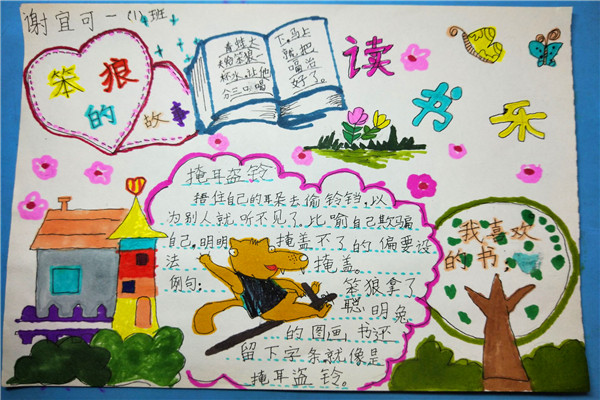 谢宜可一(1)班
笨狼
的故事
杯水,让他
分三口喝
下,马上
就把
嗝治
好了。
读书乐
掩耳盗铃
捂住自己的耳朵去偷铃铛,以
为别人就听不见了。比喻自己欺骗
自己,明明掩盖不了的偏要设
法掩盖。
例句:
笨狼拿了
聪明兔
的图画书还
留下字条,就像是
掩耳盗铃。
我喜欢
的书